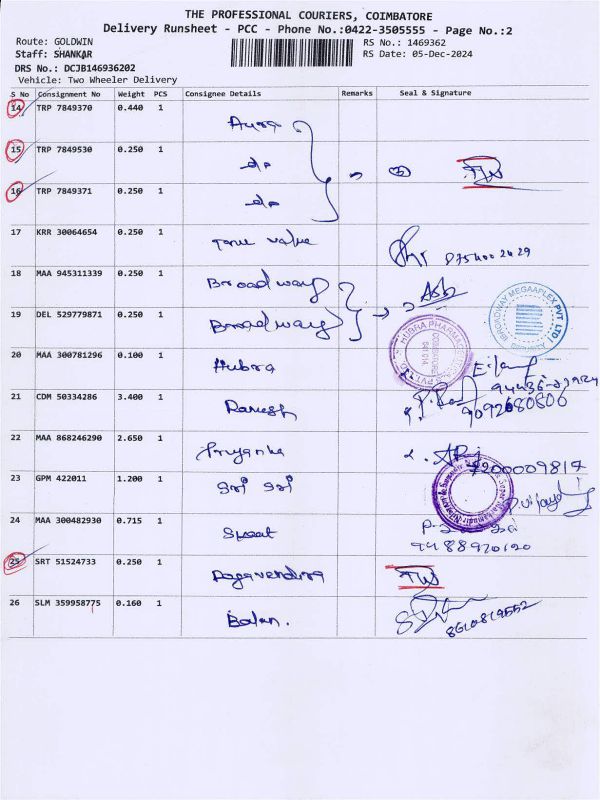 THE PROFESSIONAL COURIERS, COIMBATORE
Delivery Runsheet - PCC - Phone No.:0422-3505555 - Page No.:2
Route: GOLDWIN
RS No.: 1469362
Staff: SHANKAR
RS Date: 05-Dec-2024
DRS No.: DCJB146936202
Vehicle: Two Wheeler Delivery
S No Consignment No Weight PCS Consignee Details Remarks Seal & Signature
14 TRP 7849370 0.440 1
15 TRP 7849530 0.250 1 do
16 TRP 7849371 0.250 1 do
17 KRR 30064654 0.250 1 Tone value
18 MAA 945311339 0.250 1 Broadway
19 DEL 529779871 0.250 1 Broadway
BROADWAY MEGAAPLEX PVT LTD
HUBRA PHARMA
20 MAA 300781296 0.100 1 Hubra
21 CDM 50334286 3.400 1 Ramesh 9092680806
22 MAA 868246290 2.650 1 Priyanka 7200009817
23 GPM 422011 1.200 1
24 MAA 300482930 0.715 1
9488970120
25 SRT 51524733 0.250 1 Ragavendira
26 SLM 359958775 0.160 1 Balan. 8610819552